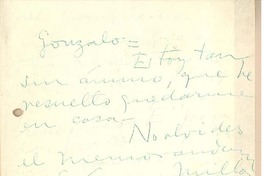 Gonzalo =
Estoy tan
sin ánimo, que he
resuelto quedarme
en casa —
No olvides
el memorandum